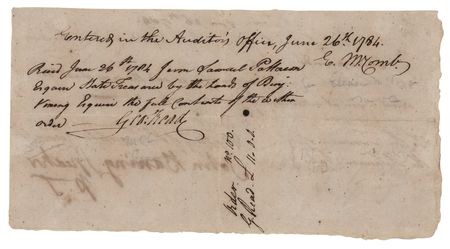 Entered in the Auditor's Office, June 26th. 1784.
E. McComb
Recd June 26th 1784 from Samuel Patterson
Esquire State Treasurer by the hands of Benj:
Vining Esquire the full Contents of the within
order Geo. Read
Order No. 100.
G Read £